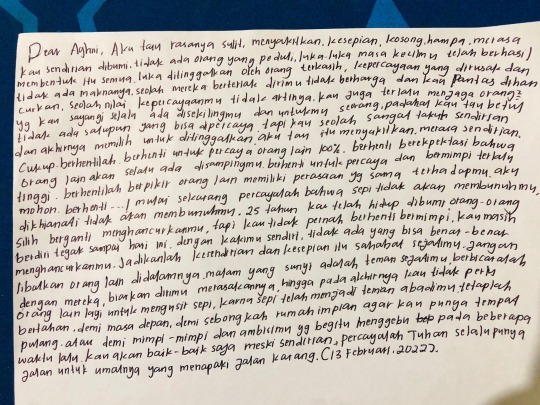 Dear Aghni, Aku tau rasanya sulit, menyakitkan, kesepian, kosong, hampa, merasa
kau sendirian dibumi. tidak ada orang yang peduli, luka luka masa kecilmu telah berhasil
membentuk itu semua. luka ditinggalkan oleh orang terkasih, kepercayaan yang dirusak dan
tidak ada maknanya. seolah mereka berteriak dirimu tidak berharga dan kau pantas dihan
curkan, seolah nilai kepercayaanmu tidak artinya. kau juga terlalu menjaga orang2
yg kau sayangi selalu ada disekilingmu dan untukmu seorang, padahal kau tau betul
tidak ada satupun yang bisa dipercaya tapi kau seolah sangat takut sendirian
dan akhirnya memilih untuk ditinggalkan. aku tau itu menyakitkan, merasa sendirian.
Cukup. berhentilah. berhenti untuk percaya orang lain 100%. berhenti berekspektasi bahwa
orang lain akan selalu ada disampingmu. berhenti untuk percaya dan bermimpi terlalu
tinggi. berhentilah berpikir orang lain memiliki perasaan yg sama terhadapmu. aku
mohon. berhenti...! mulai sekarang percayalah bahwa sepi tidak akan membunuhmu,
dikhianati tidak akan membunuhmu. 25 tahun kau telah hidup dibumi orang-orang
silih berganti menghancurkanmu, tapi kau tidak pernah berhenti bermimpi, kau masih
berdiri tegak sampai hari ini. dengan kakimu sendiri. tidak ada yang bisa benar-benar
menghancurkanmu. Jadikanlah kesendirian dan kesepian itu sahabat sejatimu. jangan
libatkan orang lain didalamnya. malam yang sunyi adalah teman sejatimu, berbicaralah
dengan mereka, biarkan dirimu merasakannya, hingga pada akhirnya kau tidak perlu
orang lain lagi untuk mengusir sepi, karna sepi telah menjadi teman abadimu. tetaplah
bertahan. demi masa depan, demi sebongkah rumah impian agar kau punya tempat
pulang. atau demi mimpi-mimpi dan ambisimu yg begitu menggebu pada beberapa
waktu lalu. kau akan baik-baik saja meski sendirian, percayalah Tuhan selalu punya
jalan untuk umatnya yang menapaki jalan karang. (13 Februari, 2022).